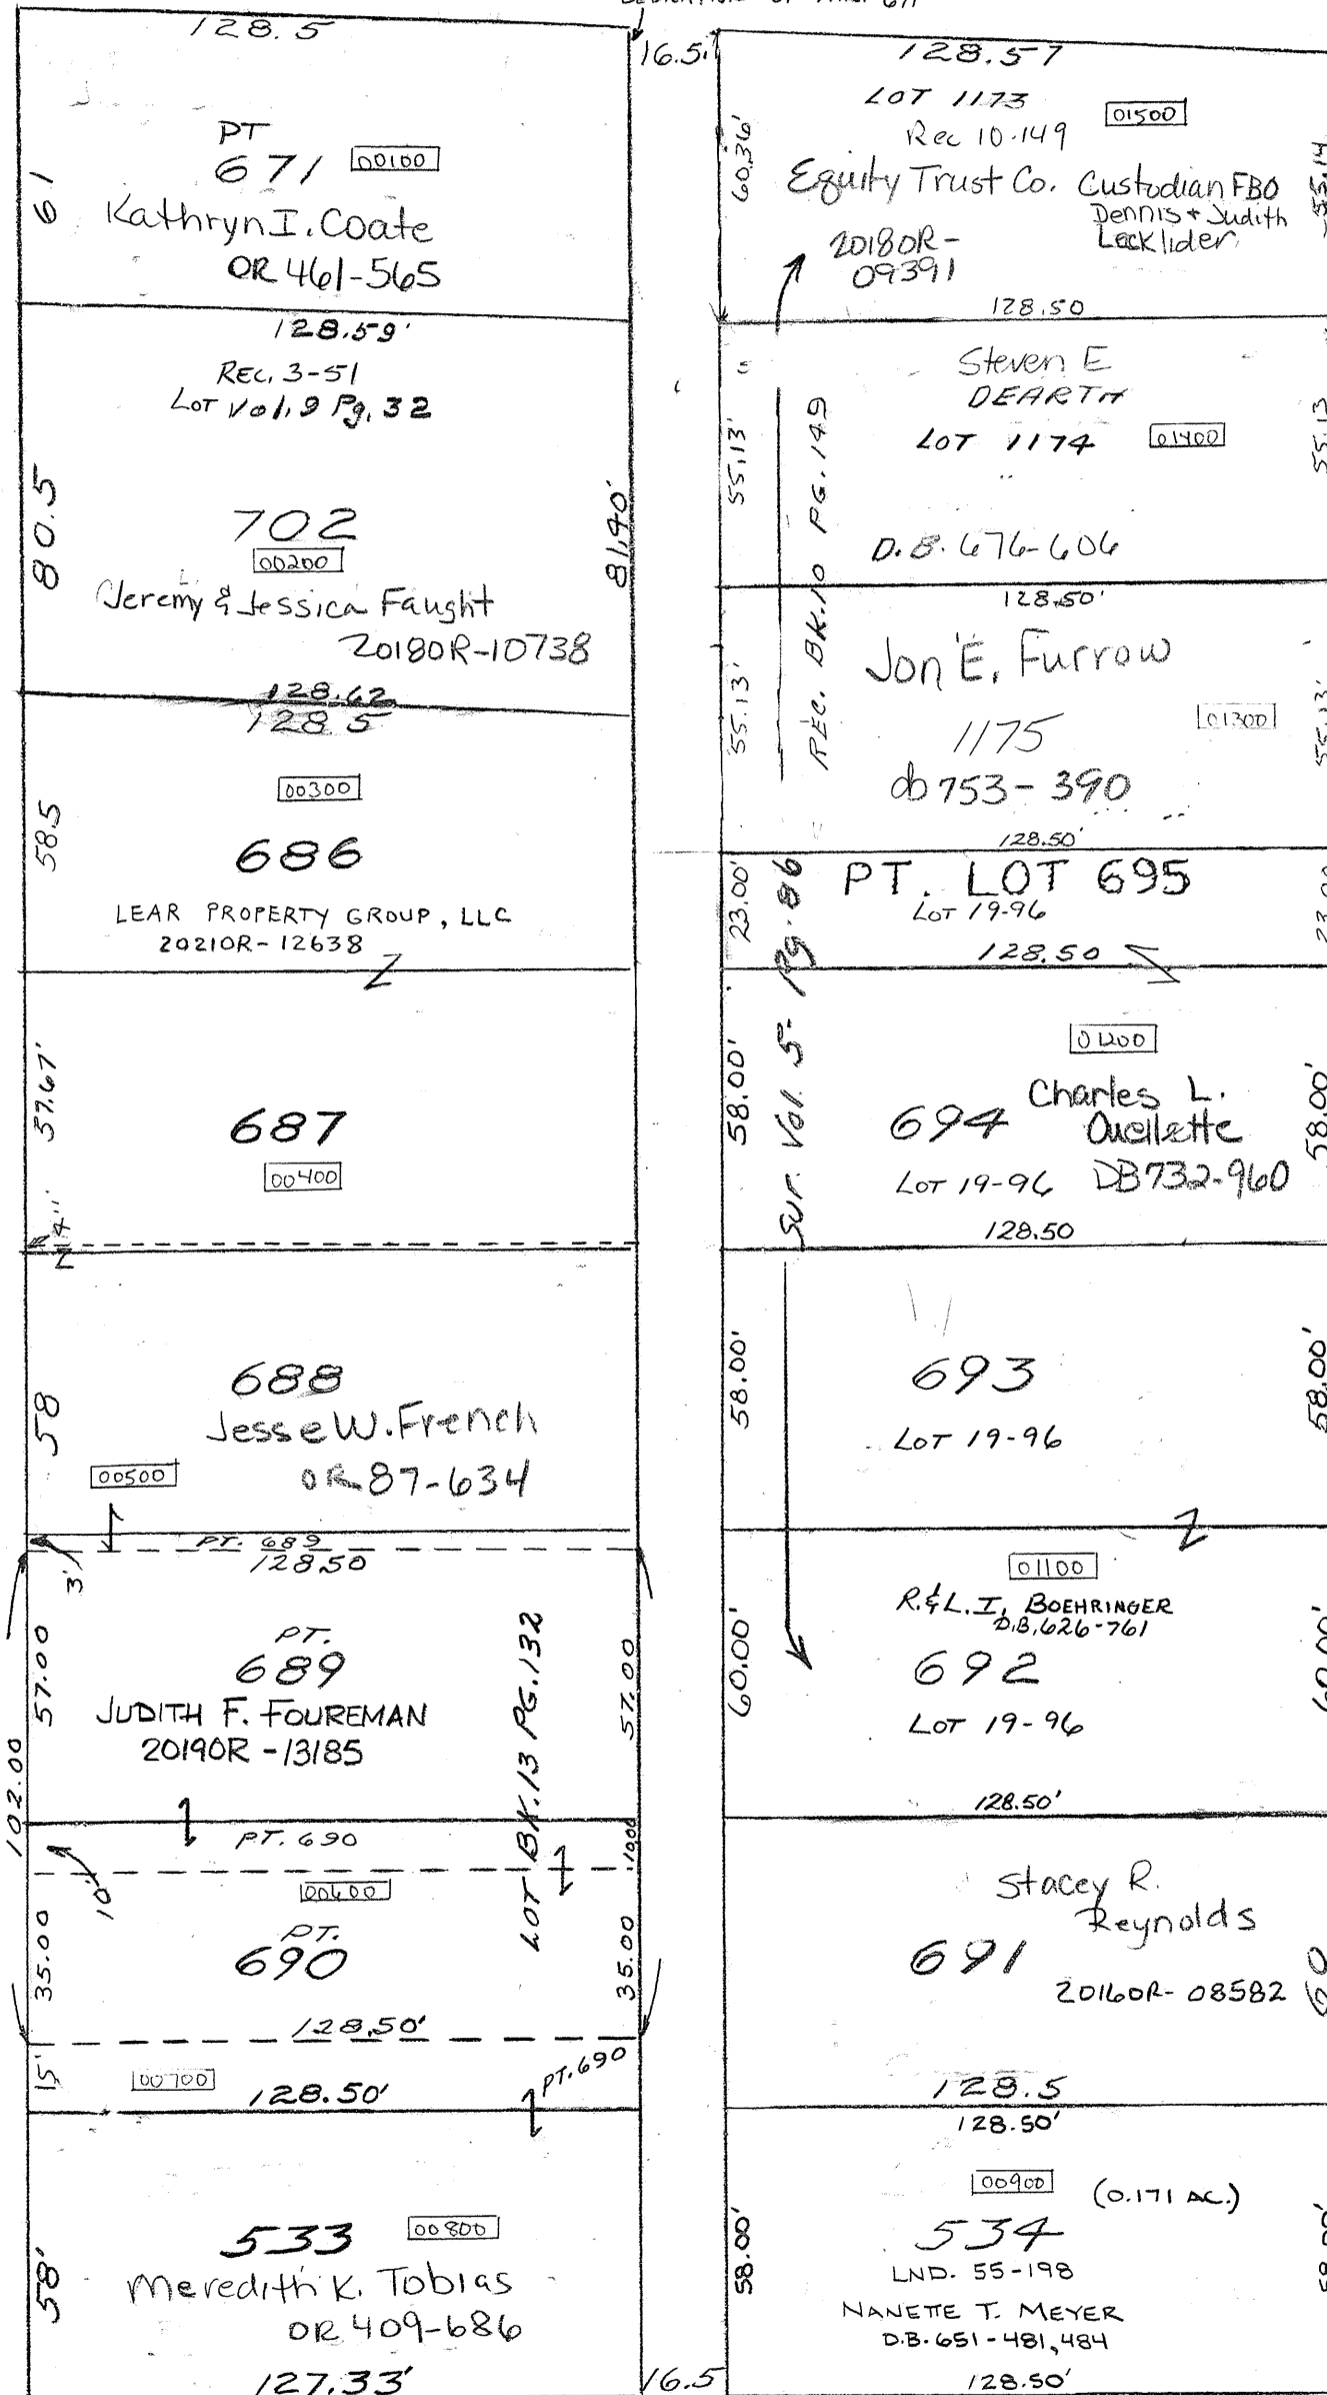 128.5
16.5'
PT
671 00100
61
Kathryn I. Coate
OR 461-565
128.59'
REC. 3-51
LOT Vol. 9 Pg. 32
80.5
81.40'
702
00200
Jeremy L. & Jessica Faught
2018OR-10738
128.62
128.5
00300
58.5
686
LEAR PROPERTY GROUP, LLC
2021OR-12638
Z
57.67'
687
00400
4"
Z
58
688
Jesse W. French
OR 87-634
00500
PT. 689
128.50
3'
57.00
PT.
689
JUDITH F. FOUREMAN
2019OR-13185
57.00
LOT BK.13 PG.132
102.00
PT. 690
10'
10.00
00600
35.00
PT.
690
35.00
128.50'
15'
00700
128.50'
PT. 690
58'
533 00800
Meredith K. Tobias
OR 409-686
127.33'
16.5
128.57
LOT 1173
01500
Rec 10-149
60.36'
55.14
Equity Trust Co. Custodian FBO
Dennis + Judith
Lecklider
2018OR-
09391
128.50
Steven E
DEARTH
LOT 1174 01400
55.13'
55.13
D.B. 676-606
REC. BK.10 PG.149
128.50'
Jon E. Furrow
01300
55.13'
55.13'
1175
db 753-390
128.50'
PT. LOT 695
LOT 19-96
23.00'
23.00
128.50
Sur. Vol. 5- Pg. 86
01200
58.00'
58.00'
694
Charles L.
Ouellette
LOT 19-96 DB 732-960
128.50
58.00'
58.00'
693
LOT 19-96
Z
01100
R. & L. I. BOEHRINGER
D.B. 626-761
60.00'
60.00'
692
LOT 19-96
128.50'
Stacey R.
Reynolds
691
2016OR-08582
60
128.5
128.50'
00900 (0.171 AC.)
534
58.00'
58.00'
LND. 55-198
NANETTE T. MEYER
D.B. 651-481,484
128.50'